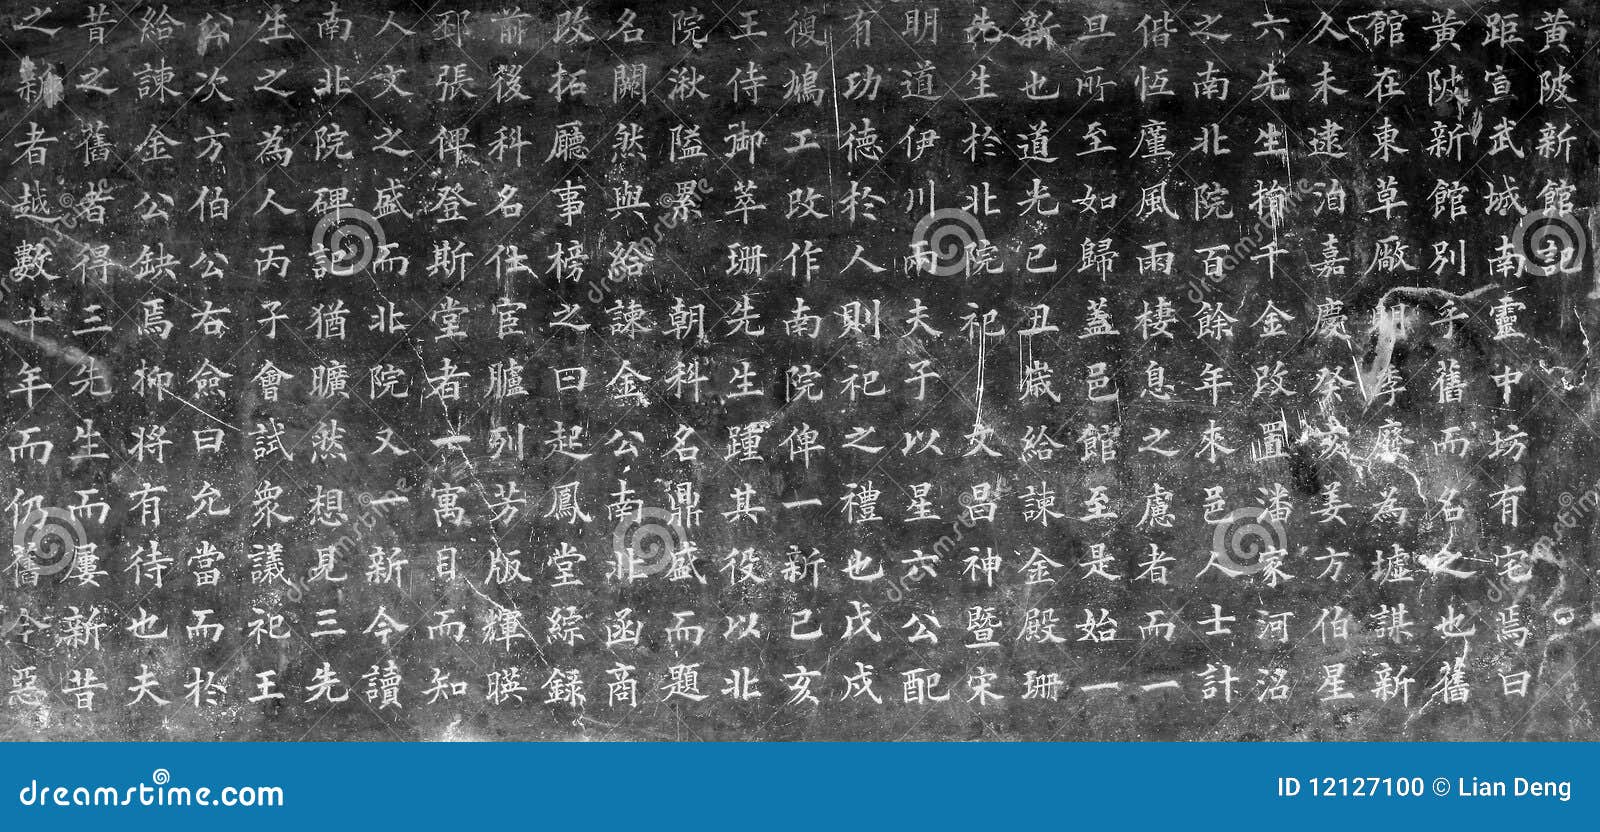 黄陂新館記
距宣武城南靈中坊有宅焉曰
黄陂新館別乎舊而名之也舊
館在東草厰明季廢為墟謀新
久未逮泊嘉慶癸亥姜方伯星
六先生捐千金改置潘家河沿
之南北院百餘年來邑人士計
偕恆廑風雨棲息之慮者而一
旦所至如歸蓋邑館至是始一
新也道光己丑歲給諫金殿珊
先生於北院祀文昌神暨宋
明道伊川兩夫子以星六公配
有功德於人則祀之禮也戊戌
復鳩工改作南院俾一新已亥
王侍御萃珊先生踵其役以北
院湫隘累朝科名鼎盛而題
名闕然與給諫金公南北函商
改拓廳事榜之曰起鳳堂綜錄
前後科名仕宦臚列芳版輝暎
郅張俾登斯堂者一寓目而知
人文之盛而北院又一新今讀
南北院碑記猶曠然想見三先
生之為人丙子會試衆議祀王
公次方伯公右僉曰允當而於
給諫金公缺焉抑将有待也夫
昔之舊者得三先生而屢新昔
之新者越數十年而仍舊今惡
dreamstime.com
ID 12127100 © Lian Deng